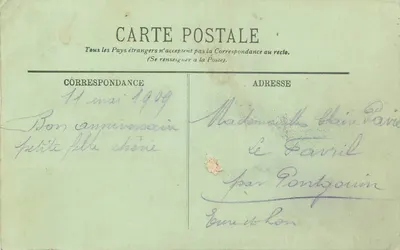 CARTE POSTALE
Tous les Pays étrangers n'acceptent pas la Correspondance au recto.
(Se renseigner à la Poste).
CORRESPONDANCE
11 mai 1909
Bon anniversaire
petite fille chérie
ADRESSE
Mademoiselle Claire
Le Favril
par Pontgouin
Eure et Loir